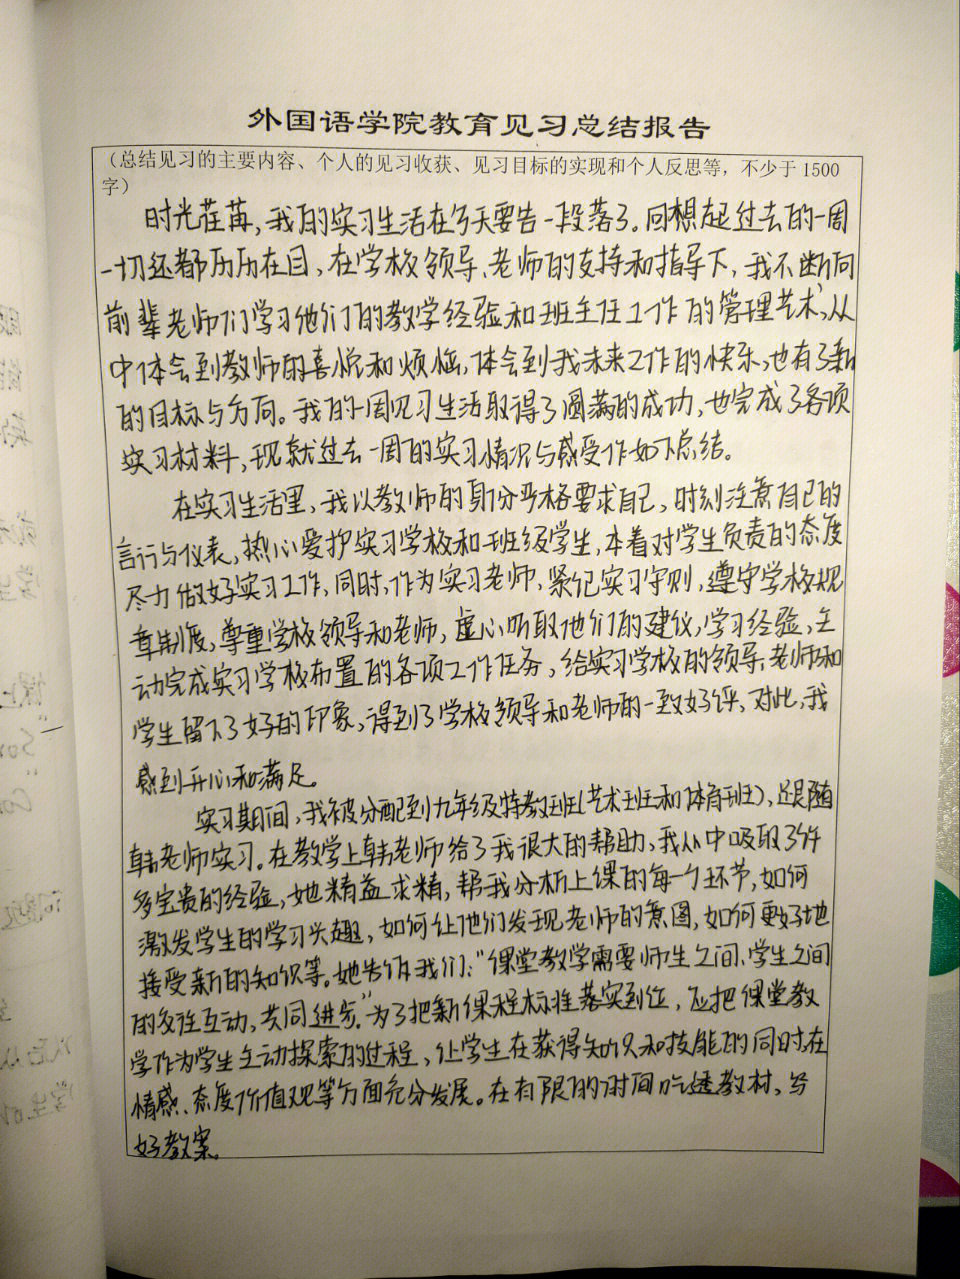 外国语学院教育见习总结报告
（总结见习的主要内容、个人的见习收获、见习目标的实现和个人反思等，不少于1500
字）
时光荏苒，我的实习生活在今天要告一段落了。回想起过去的一周
一切还都历历在目，在学校领导、老师的支持和指导下，我不断向
前辈老师们学习他们的教学经验和班主任工作的管理艺术，从
中体会到教师的喜悦和烦恼，体会到我未来工作的快乐，也有了新
的目标与方向。我的一周见习生活取得了圆满的成功，也完成了各项
实习材料，现就过去一周的实习情况与感受作如下总结。
在实习生活里，我以教师的身份严格要求自己，时刻注意自己的
言行与仪表，热心爱护实习学校和班级学生，本着对学生负责的态度
尽力做好实习工作，同时，作为实习老师，紧记实习守则，遵守学校规
章制度，尊重学校领导和老师，虚心听取他们的建议，学习经验，主
动完成实习学校布置的各项工作任务，给实习学校的领导，老师和
学生留下了好的印象，得到了学校领导和老师的一致好评，对此，我
感到开心和满足。
实习期间，我被分配到九年级特教班（艺术班和体育班），跟随
韩老师实习。在教学上韩老师给了我很大的帮助，我从中吸取了许
多宝贵的经验，她精益求精，帮我分析上课的每一个环节，如何
激发学生的学习兴趣，如何让他们发现老师的意图，如何更好地
接受新的知识等。她告诉我们：“课堂教学需要师生之间、学生之间
的多往互动，共同进步。”为了把新课程标准落实到位，应把课堂教
学作为学生主动探索的过程，让学生在获得知识和技能的同时，在
情感、态度价值观等方面充分发展。在有限的时间吃透教材，写
好教案。